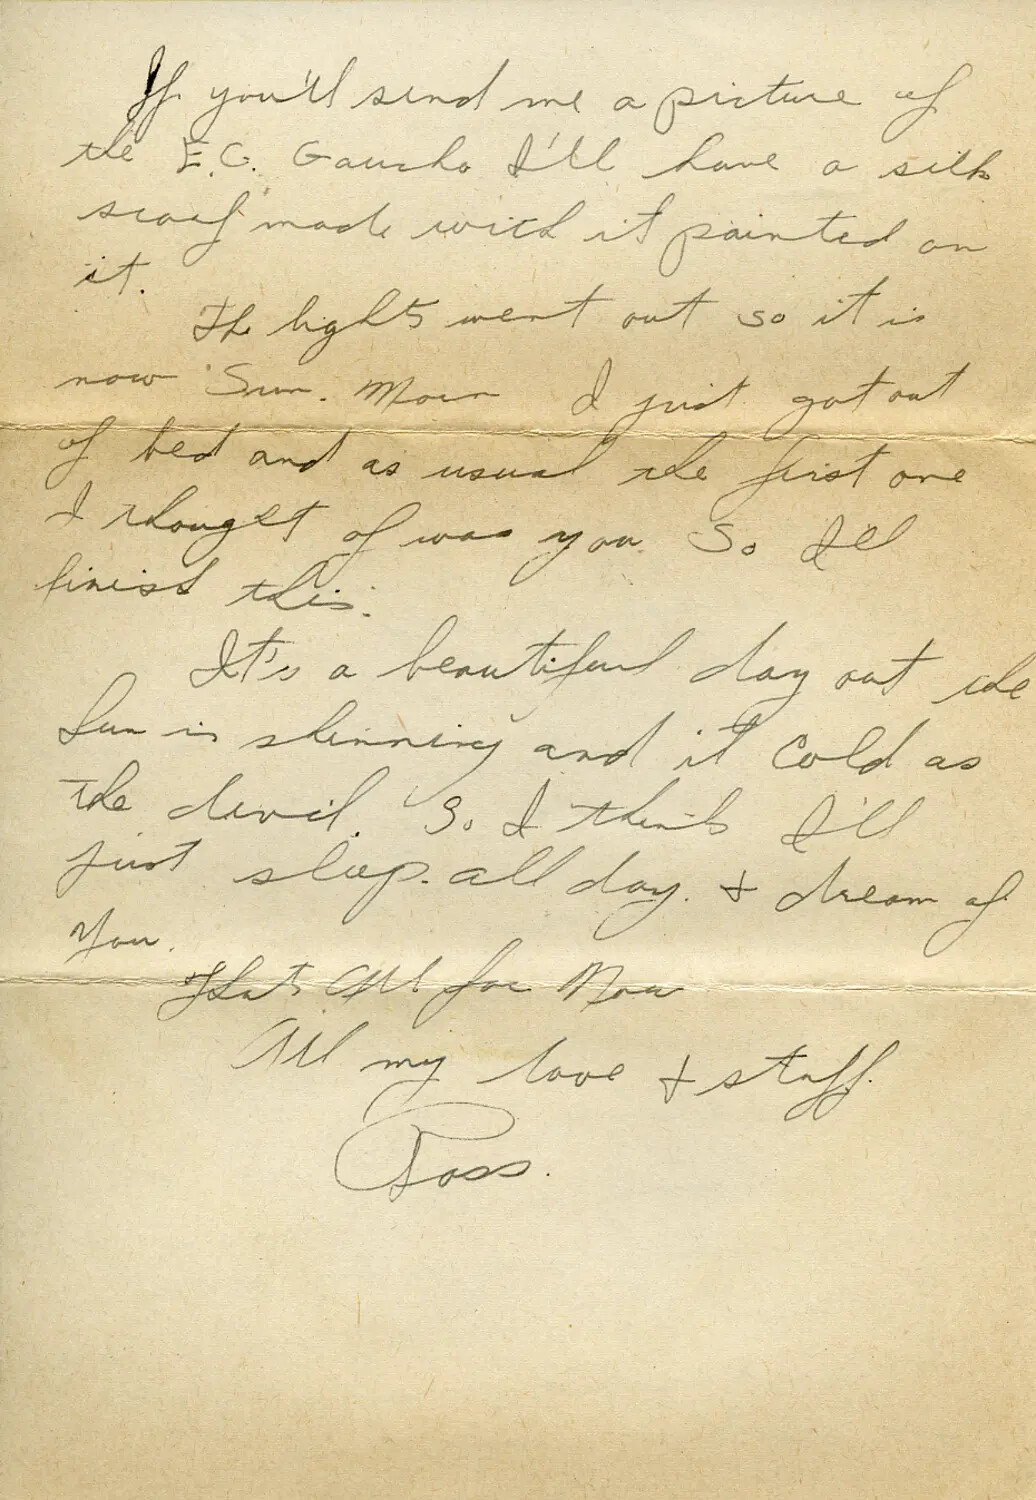 If you'll send me a picture of
the E.G. Gaucho I'll have a silk
scarf made with it painted on
it.
The lights went out so it is
now Sun. Morn I just got out
of bed and as usual the first one
I thought of was you. So I'll
finish this.
It's a beautiful day out the
Sun is shinning and it cold as
the devil. So I think I'll
just sleep all day. & dream of
You.
That's All for Now
All my love & stuff.
Ross.